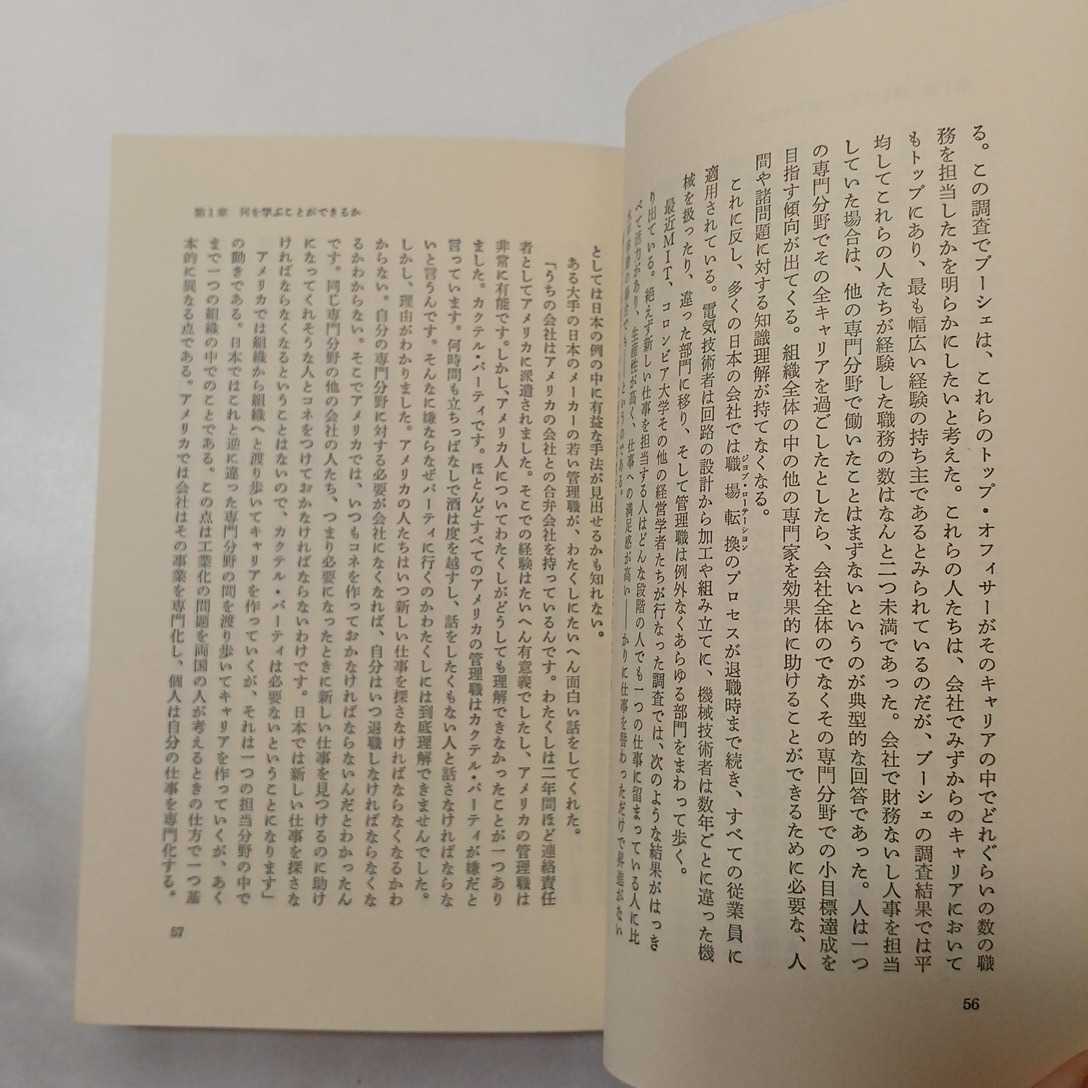 る。この調査でブーシェは、これらのトップ・オフィサーがそのキャリアの中でどれぐらいの数の職
務を担当したかを明らかにしたいと考えた。これらの人たちは、会社でみずからのキャリアにおいて
もトップにあり、最も幅広い経験の持ち主であるとみられているのだが、ブーシェの調査結果では平
均してこれらの人たちが経験した職務の数はなんと二つ未満であった。会社で財務ないし人事を担当
していた場合は、他の専門分野で働いたことはまずないというのが典型的な回答であった。人は一つ
の専門分野でその全キャリアを過ごしたとしたら、会社全体のでなくその専門分野での小目標達成を
目指す傾向が出てくる。組織全体の中の他の専門家を効果的に助けることができるために必要な、人
間や諸問題に対する知識理解が持てなくなる。
これに反し、多くの日本の会社では職場転換のプロセスが退職時まで続き、すべての従業員に
ジョブ・ローテーション
適用されている。電気技術者は回路の設計から加工や組み立てに、機械技術者は数年ごとに違った機
械を扱ったり、違った部門に移り、そして管理職は例外なくあらゆる部門をまわって歩く。
最近MIT、コロンビア大学その他の経営学者たちが行なった調査では、次のような結果がはっき
り出ている。絶えず新しい仕事を担当する人はどんな段階の人でも一つの仕事に留まっている人に比
べて活力があり、生産性が高く、仕事への満足感が高い――かりに仕事を替わっただけで昇進がない
56
第1章 何を学ぶことができるか
としては日本の例の中に有益な手法が見出せるかも知れない。
ある大手の日本のメーカーの若い管理職が、わたくしにたいへん面白い話をしてくれた。
「うちの会社はアメリカの会社との合弁会社を持っているんです。わたくしは二年間ほど連絡責任
者としてアメリカに派遣されました。そこでの経験はたいへん有意義でしたし、アメリカの管理職は
非常に有能です。しかし、アメリカ人についてわたくしがどうしても理解できなかったことが一つあり
ました。カクテル・パーティです。ほとんどすべてのアメリカの管理職はカクテル・パーティが嫌だと
言っています。何時間も立ちっぱなしで酒は度を越すし、話をしたくもない人と話さなければならな
いと言うんです。そんなに嫌ならなぜパーティに行くのかわたくしには到底理解できませんでした。
しかし、理由がわかりました。アメリカの人たちはいつ新しい仕事を探さなければならなくなるかわ
からない。自分の専門分野に対する必要が会社になくなれば、自分はいつ退職しなければならなくな
るかわからない。そこでアメリカでは、いつもコネを作っておかなければならないんだとわかったん
です。同じ専門分野の他の会社の人たち、つまり必要になったときに新しい仕事を見つけるのに助け
になってくれそうな人とコネをつけておかなければならないわけです。日本では新しい仕事を探さな
ければならなくなるということはないので、カクテル・パーティは必要ないということになります」
アメリカでは組織から組織へと渡り歩いてキャリアを作っていくが、それは一つの担当分野の中で
の働きである。日本ではこれと逆に違った専門分野の間を渡り歩いてキャリアを作っていくが、あく
まで一つの組織の中でのことである。この点は工業化の問題を両国の人が考えるときの仕方で一つ基
本的に異なる点である。アメリカでは会社はその事業を専門化し、個人は自分の仕事を専門化する。
57